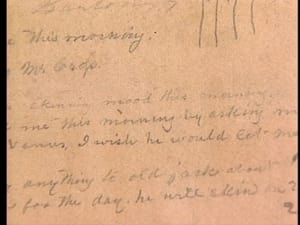 This morning.
Mr Crop.
skinin mood this morning
me this morning by asking m
Venus, I wish he would let me
anything to old jack about
for the day. he will skin